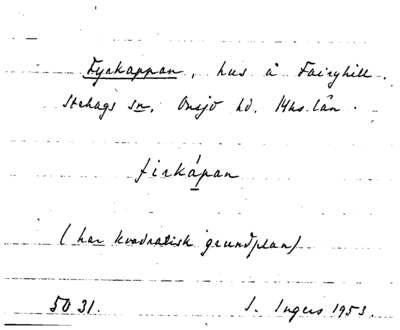 Fyrkappan, hus å Fairyhill.
Stehags sn, Onsjö hd. Mhs län.
firkápan
(har kvadratisk grundplan)
5031. I. Ingers 1953.